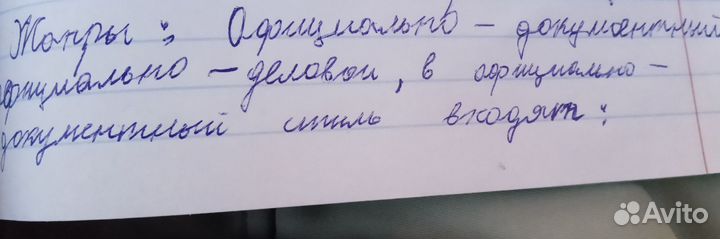 Жанры: Официально - документный
официально - деловой, в официально -
документный стиль входят:
Avito